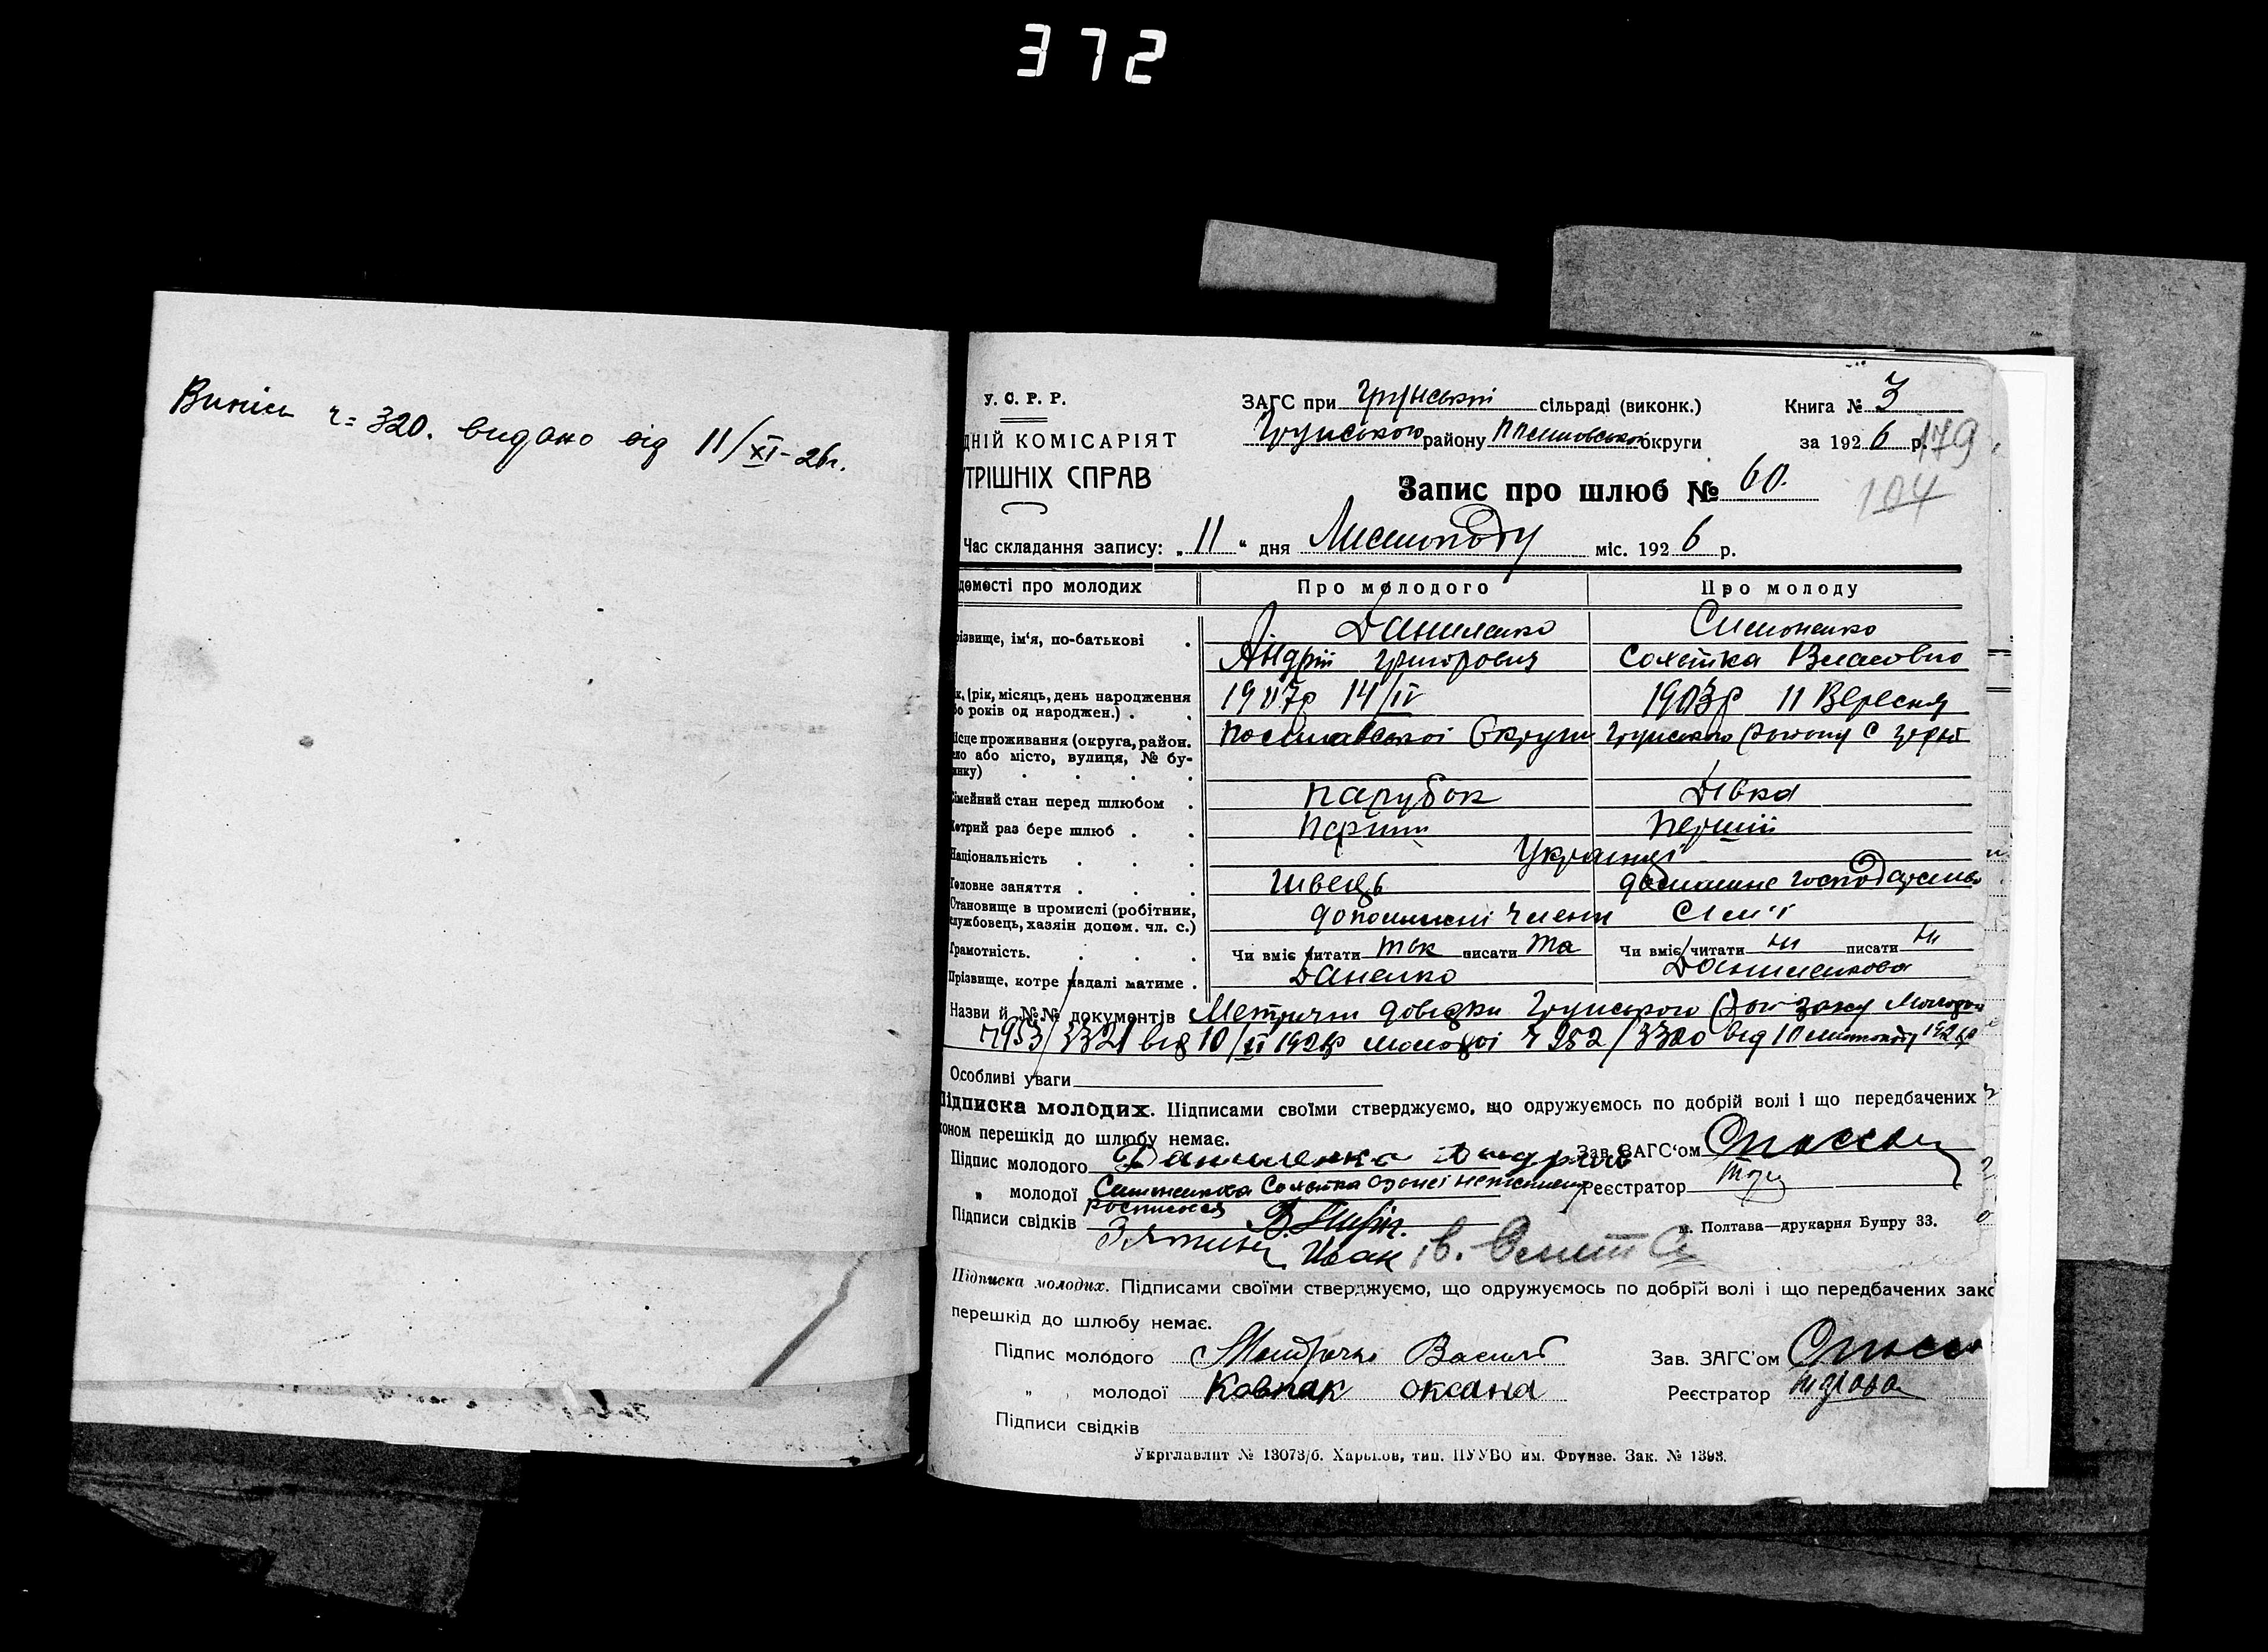 372
Випись ч= 320. видано від 11/XI-26р.
У. С. Р. Р.
ДНІЙ КОМІСАРІЯТ
ТРІШНІХ СПРАВ
ЗАГС при Грунській сільраді (виконк.)
Грунського району Полтавської округи
Книга № 3
за 1926 р.
179
104
Запис про шлюб № 60.
Час складання запису: „ 11 “ дня Листопаду міс. 1926 р.
домості про молодих Про молодого Про молоду
різвище, ім'я, по-батькові . Даниленко Симоненко
Андрій Григорович Сахвтка Власовно
к, (рік, місяць, день народження 1907р 14/IV 1903р 11 Вересня
бо років од народжен.) . .
ісце проживання (округа, район. Полтавської Округи Грунського району С
ело або місто, вулиця, № бу-
инку) . . . .
імейний стан перед шлюбом . парубок дівка
отрий раз бере шлюб . . Перший Перший
Національність . . . Українці
Головне заняття . . . Швець домашне господарство
Становище в промислі (робітник, допомишні члени сем'ї
службовець, хазяін допом. чл. с.)
Грамотність. . . . Чи вміє читати так писати та Чи вміє читати ни писати ни
Прізвище, котре надалі матиме . Даненко Даниленкова
Назви й №№ документів Метричні довідки Грунського
953/3321 від 10/XI 1926р молодої ч 952/3320 від 10 листопаду 1926р
Особливі уваги
Підписка молодих. Підписами своїми стверджуємо, що одружуємось по добрій волі і що передбачених
коном перешкід до шлюбу немає.
Підпис молодого Даниленко Андрій Зав. ЗАГС'ом
„ молодої Симоненкова Реєстратор
Підписи свідків
Іван
м. Полтава—друкарня Бупру 33.
Підписка молодих. Підписами своїми стверджуємо, що одружуємось по добрій волі і що передбачених зако
перешкід до шлюбу немає.
Підпис молодого Василь Зав. ЗАГС'ом
„ молодої Ковпак Оксана Реєстратор
Підписи свідків
Укрглавлит № 13073/б. Харьков, тип. ПУУВО им. Фрунзе. Зак. № 1393.